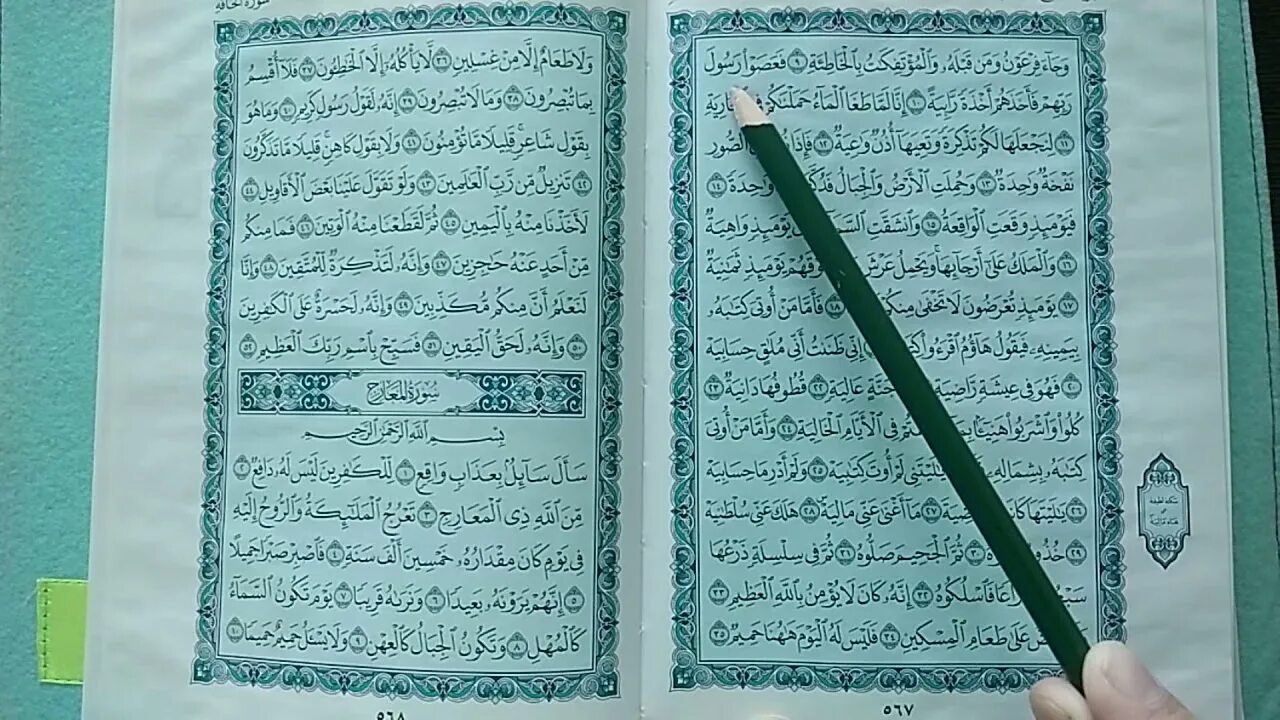 وَجَآءَ فِرْعَوْنُ وَمَن قَبْلَهُۥ وَٱلْمُؤْتَفِكَٰتُ بِٱلْخَاطِئَةِ ٩ فَعَصَوْا۟ رَسُولَ
رَبِّهِمْ فَأَخَذَهُمْ أَخْذَةً رَّابِيَةً ١٠ إِنَّا لَمَّا طَغَا ٱلْمَآءُ حَمَلْنَٰكُمْ
١١ لِنَجْعَلَهَا لَكُمْ تَذْكِرَةً وَتَعِيَهَآ أُذُنٌ وَٰعِيَةٌ ١٢ فَإِذَا ٱلصُّورِ
نَفْخَةٌ وَٰحِدَةٌ ١٣ وَحُمِلَتِ ٱلْأَرْضُ وَٱلْجِبَالُ وَٰحِدَةً ١٤
فَيَوْمَئِذٍ وَقَعَتِ ٱلْوَاقِعَةُ ١٥ وَٱنشَقَّتِ يَوْمَئِذٍ وَاهِيَةٌ
١٦ وَٱلْمَلَكُ عَلَىٰٓ أَرْجَآئِهَا وَيَحْمِلُ عَرْشَ يَوْمَئِذٍ ثَمَٰنِيَةٌ
١٧ يَوْمَئِذٍ تُعْرَضُونَ لَا تَخْفَىٰ ١٨ فَأَمَّا مَنْ أُوتِىَ كِتَٰبَهُۥ
بِيَمِينِهِۦ فَيَقُولُ هَآؤُمُ ٱقْرَءُوا۟ إِنِّى ظَنَنتُ أَنِّى مُلَٰقٍ حِسَابِيَهْ
٢٠ فَهُوَ فِى عِيشَةٍ رَّاضِيَةٍ عَالِيَةٍ ٢٢ قُطُوفُهَا دَانِيَةٌ ٢٣
كُلُوا۟ وَٱشْرَبُوا۟ هَنِيٓـًٔۢا فِى ٱلْأَيَّامِ ٱلْخَالِيَةِ ٢٤ وَأَمَّا مَنْ أُوتِىَ
كِتَٰبَهُۥ بِشِمَالِهِۦ يَٰلَيْتَنِى لَمْ أُوتَ كِتَٰبِيَهْ ٢٥ وَلَمْ أَدْرِ مَا حِسَابِيَهْ
٢٦ يَٰلَيْتَهَا ٢٧ مَآ أَغْنَىٰ عَنِّى مَالِيَهْ ٢٨ هَلَكَ عَنِّى سُلْطَٰنِيَهْ
٢٩ ثُمَّ ٱلْجَحِيمَ صَلُّوهُ ٣١ ثُمَّ فِى سِلْسِلَةٍ ذَرْعُهَا
فَٱسْلُكُوهُ ٣٢ إِنَّهُۥ كَانَ لَا يُؤْمِنُ بِٱللَّهِ ٱلْعَظِيمِ ٣٣
عَلَىٰ طَعَامِ ٱلْمِسْكِينِ ٣٤ فَلَيْسَ لَهُ ٱلْيَوْمَ هَٰهُنَا حَمِيمٌ ٣٥
٥٦٧
سورة الحاقة
وَلَا طَعَامٌ إِلَّا مِنْ غِسْلِينٍ ٣٦ لَّا يَأْكُلُهُۥٓ إِلَّا ٱلْخَٰطِـُٔونَ ٣٧ فَلَآ أُقْسِمُ
بِمَا تُبْصِرُونَ ٣٨ وَمَا لَا تُبْصِرُونَ ٣٩ إِنَّهُۥ لَقَوْلُ رَسُولٍ كَرِيمٍ ٤٠ وَمَا هُوَ
بِقَوْلِ شَاعِرٍ قَلِيلًا مَّا تُؤْمِنُونَ ٤١ وَلَا بِقَوْلِ كَاهِنٍ قَلِيلًا مَّا تَذَكَّرُونَ
٤٢ تَنزِيلٌ مِّن رَّبِّ ٱلْعَٰلَمِينَ ٤٣ وَلَوْ تَقَوَّلَ عَلَيْنَا بَعْضَ ٱلْأَقَاوِيلِ ٤٤
لَأَخَذْنَا مِنْهُ بِٱلْيَمِينِ ٤٥ ثُمَّ لَقَطَعْنَا مِنْهُ ٱلْوَتِينَ ٤٦ فَمَا مِنكُم
مِّنْ أَحَدٍ عَنْهُ حَٰجِزِينَ ٤٧ وَإِنَّهُۥ لَتَذْكِرَةٌ لِّلْمُتَّقِينَ ٤٨ وَإِنَّا
لَنَعْلَمُ أَنَّ مِنكُم مُّكَذِّبِينَ ٤٩ وَإِنَّهُۥ لَحَسْرَةٌ عَلَى ٱلْكَٰفِرِينَ
٥٠ وَإِنَّهُۥ لَحَقُّ ٱلْيَقِينِ ٥١ فَسَبِّحْ بِٱسْمِ رَبِّكَ ٱلْعَظِيمِ ٥٢
سُورَةُ المَعَارِجِ
بِسْمِ ٱللَّهِ ٱلرَّحْمَٰنِ ٱلرَّحِيمِ
سَأَلَ سَآئِلٌۢ بِعَذَابٍ وَاقِعٍ ١ لِّلْكَٰفِرِينَ لَيْسَ لَهُۥ دَافِعٌ ٢
مِّنَ ٱللَّهِ ذِى ٱلْمَعَارِجِ ٣ تَعْرُجُ ٱلْمَلَٰٓئِكَةُ وَٱلرُّوحُ إِلَيْهِ
فِى يَوْمٍ كَانَ مِقْدَارُهُۥ خَمْسِينَ أَلْفَ سَنَةٍ ٤ فَٱصْبِرْ صَبْرًا جَمِيلًا
٥ إِنَّهُمْ يَرَوْنَهُۥ بَعِيدًا ٦ وَنَرَىٰهُ قَرِيبًا ٧ يَوْمَ تَكُونُ ٱلسَّمَآءُ
كَٱلْمُهْلِ ٨ وَتَكُونُ ٱلْجِبَالُ كَٱلْعِهْنِ ٩ وَلَا يَسْـَٔلُ حَمِيمٌ حَمِيمًا ١٠
٥٦٨